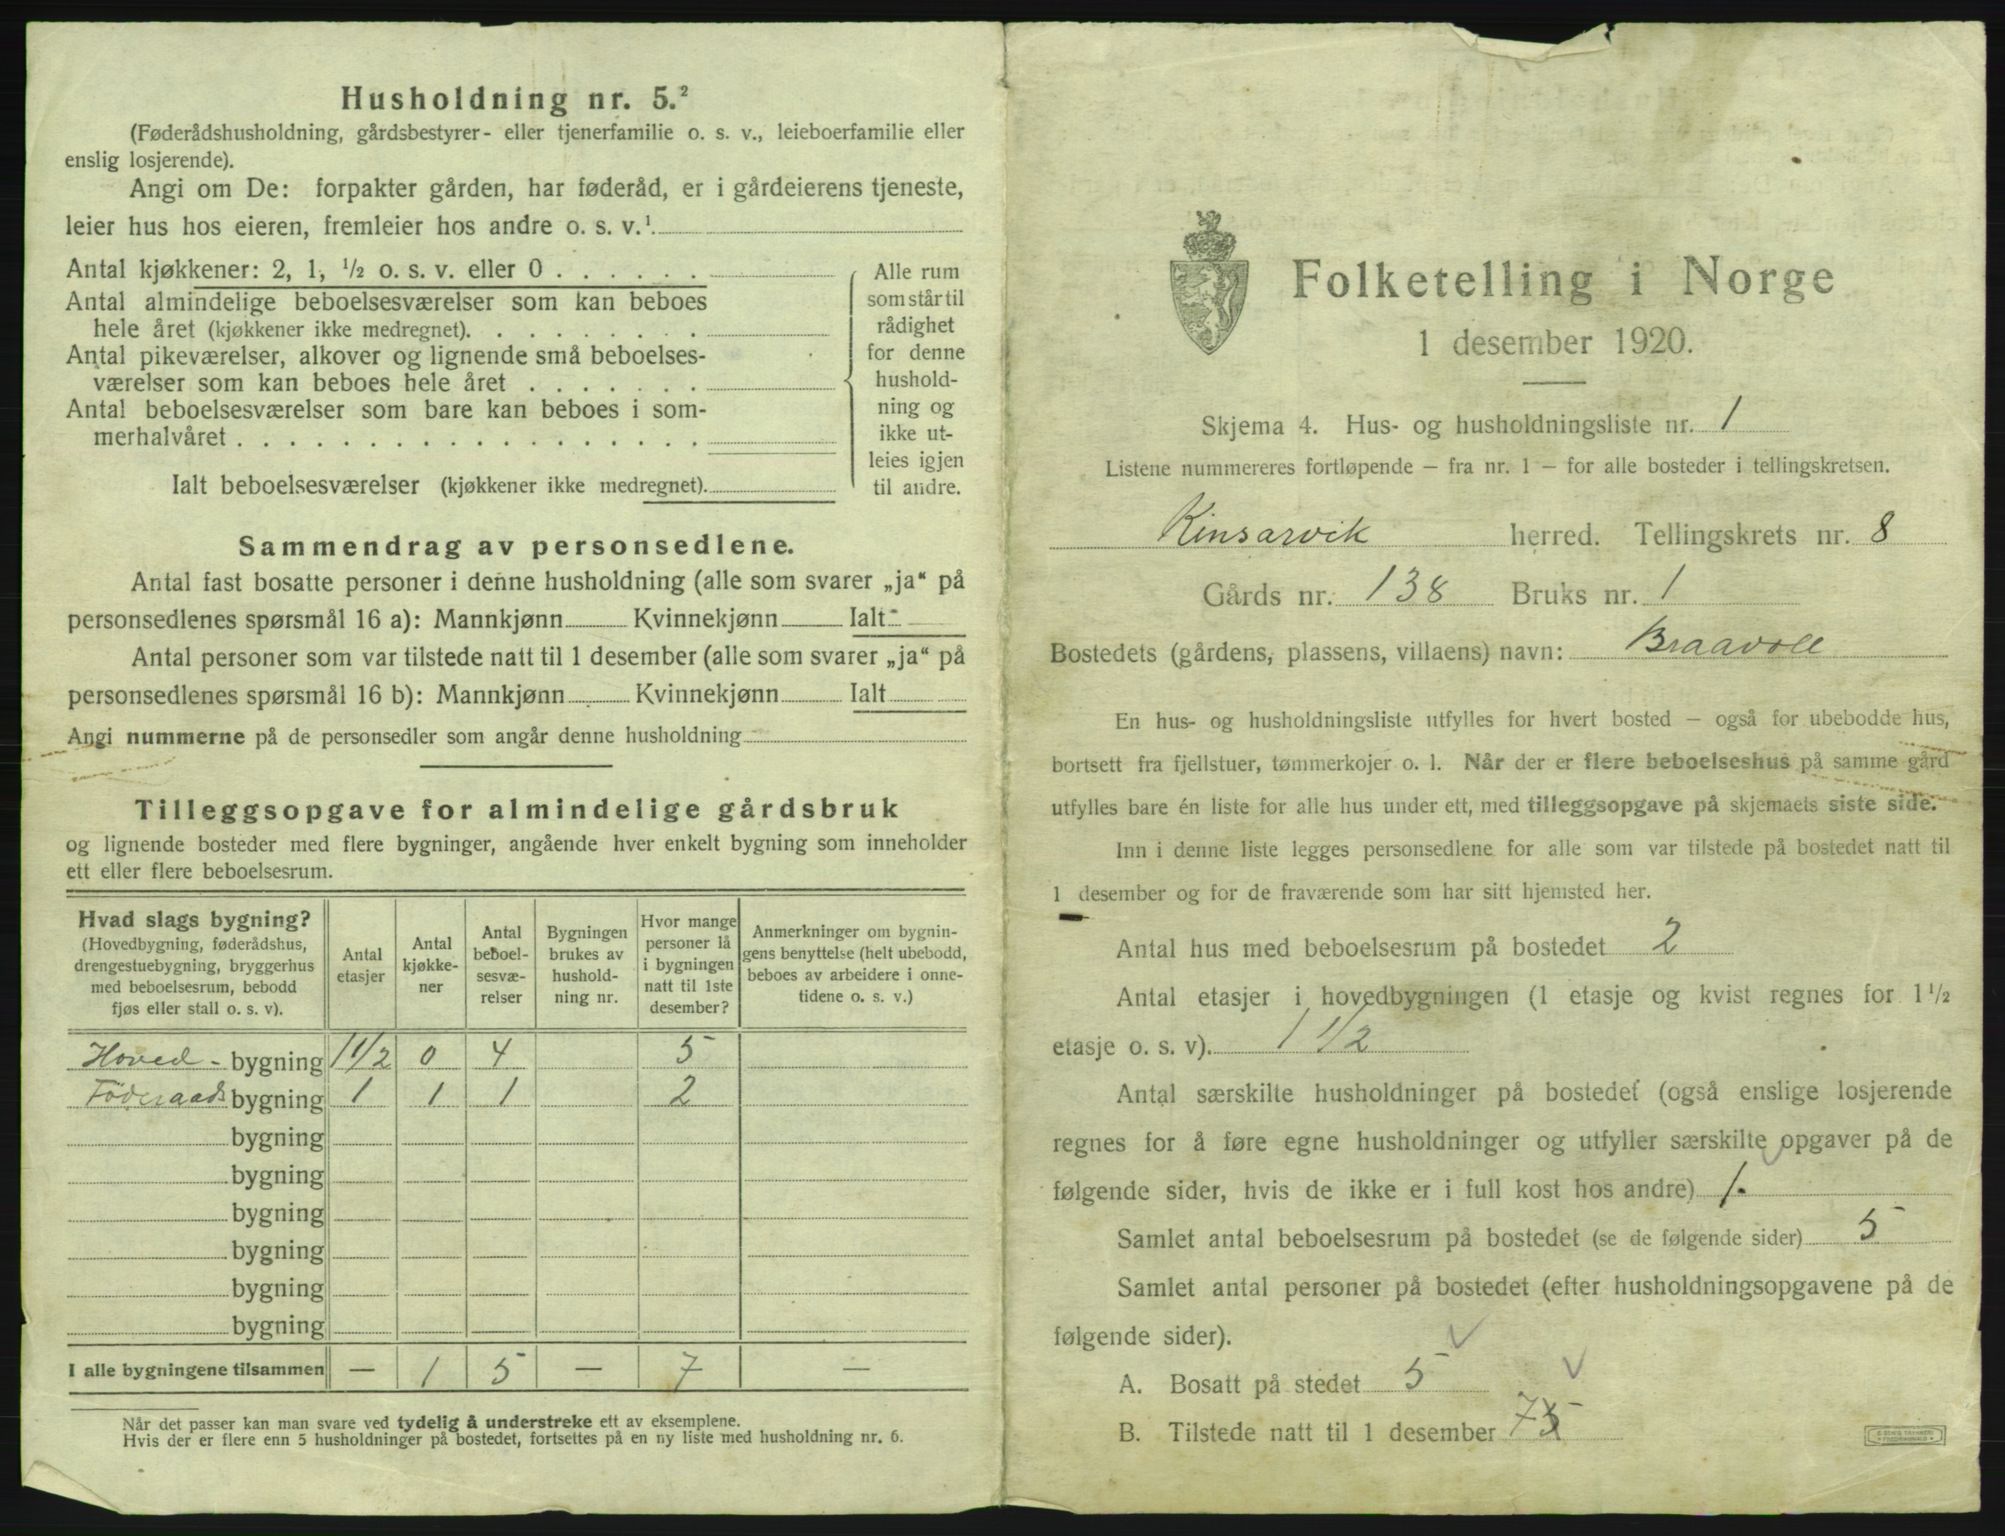 Husholdning nr. 5.²
(Føderådshusholdning, gårdsbestyrer- eller tjenerfamilie o. s. v., leieboerfamilie eller
enslig losjerende).
Angi om De: forpakter gården, har føderåd, er i gårdeierens tjeneste,
leier hus hos eieren, fremleier hos andre o. s. v.¹
Antal kjøkkener: 2, 1, ½ o. s. v. eller 0
Antal almindelige beboelsesværelser som kan beboes
hele året (kjøkkener ikke medregnet).
Antal pikeværelser, alkover og lignende små beboelses-
værelser som kan beboes hele året
Antal beboelsesværelser som bare kan beboes i som-
merhalvåret
Ialt beboelsesværelser (kjøkkener ikke medregnet).
Alle rum
som står til
rådighet
for denne
hushold-
ning og
ikke ut-
leies igjen
til andre.
Sammendrag av personsedlene.
Antal fast bosatte personer i denne husholdning (alle som svarer „ja“ på
personsedlenes spørsmål 16 a): Mannkjønn Kvinnekjønn Ialt
Antal personer som var tilstede natt til 1 desember (alle som svarer „ja“ på
personsedlenes spørsmål 16 b): Mannkjønn Kvinnekjønn Ialt
Angi nummerne på de personsedler som angår denne husholdning
Tilleggsopgave for almindelige gårdsbruk
og lignende bosteder med flere bygninger, angående hver enkelt bygning som inneholder
ett eller flere beboelsesrum.
Hvad slags bygning?
(Hovedbygning, føderådshus,
drengestuebygning, bryggerhus
med beboelsesrum, bebodd
fjøs eller stall o. s. v).
Antal
etasjer
Antal
kjøkke-
ner
Antal
beboel-
sesvæ-
relser
Bygningen
brukes av
hushold-
ning nr.
Hvor mange
personer lå
i bygningen
natt til 1ste
desember?
Anmerkninger om bygnin-
gens benyttelse (helt ubebodd,
beboes av arbeidere i onne-
tidene o. s. v.)
Hoved- bygning 1 1/2 0 4 5
Föderaads bygning 1 1 1 2
bygning
bygning
bygning
bygning
bygning
bygning
I alle bygningene tilsammen — 1 5 — 7 —
Når det passer kan man svare ved tydelig å understreke ett av eksemplene.
Hvis der er flere enn 5 husholdninger på bostedet, fortsettes på en ny liste med husholdning nr. 6.
Folketelling i Norge
1 desember 1920.
Skjema 4. Hus- og husholdningsliste nr. 1
Listene nummereres fortløpende – fra nr. 1 – for alle bosteder i tellingskretsen.
Kinsarvik herred. Tellingskrets nr. 8
Gårds nr. 138 Bruks nr. 1
Bostedets (gårdens, plassens, villaens) navn: Braavoll
En hus- og husholdningsliste utfylles for hvert bosted – også for ubebodde hus,
bortsett fra fjellstuer, tømmerkojer o. l. Når der er flere beboelseshus på samme gård
utfylles bare én liste for alle hus under ett, med tilleggsopgave på skjemaets siste side.
Inn i denne liste legges personsedlene for alle som var tilstede på bostedet natt til
1 desember og for de fraværende som har sitt hjemsted her.
Antal hus med beboelsesrum på bostedet 2
Antal etasjer i hovedbygningen (1 etasje og kvist regnes for 1½
etasje o. s. v). 1 1/2
Antal særskilte husholdninger på bostedet (også enslige losjerende
regnes for å føre egne husholdninger og utfyller særskilte opgaver på de
følgende sider, hvis de ikke er i full kost hos andre) 1.
Samlet antal beboelsesrum på bostedet (se de følgende sider) 5
Samlet antal personer på bostedet (efter husholdningsopgavene på de
følgende sider).
A. Bosatt på stedet 5
B. Tilstede natt til 1 desember 7